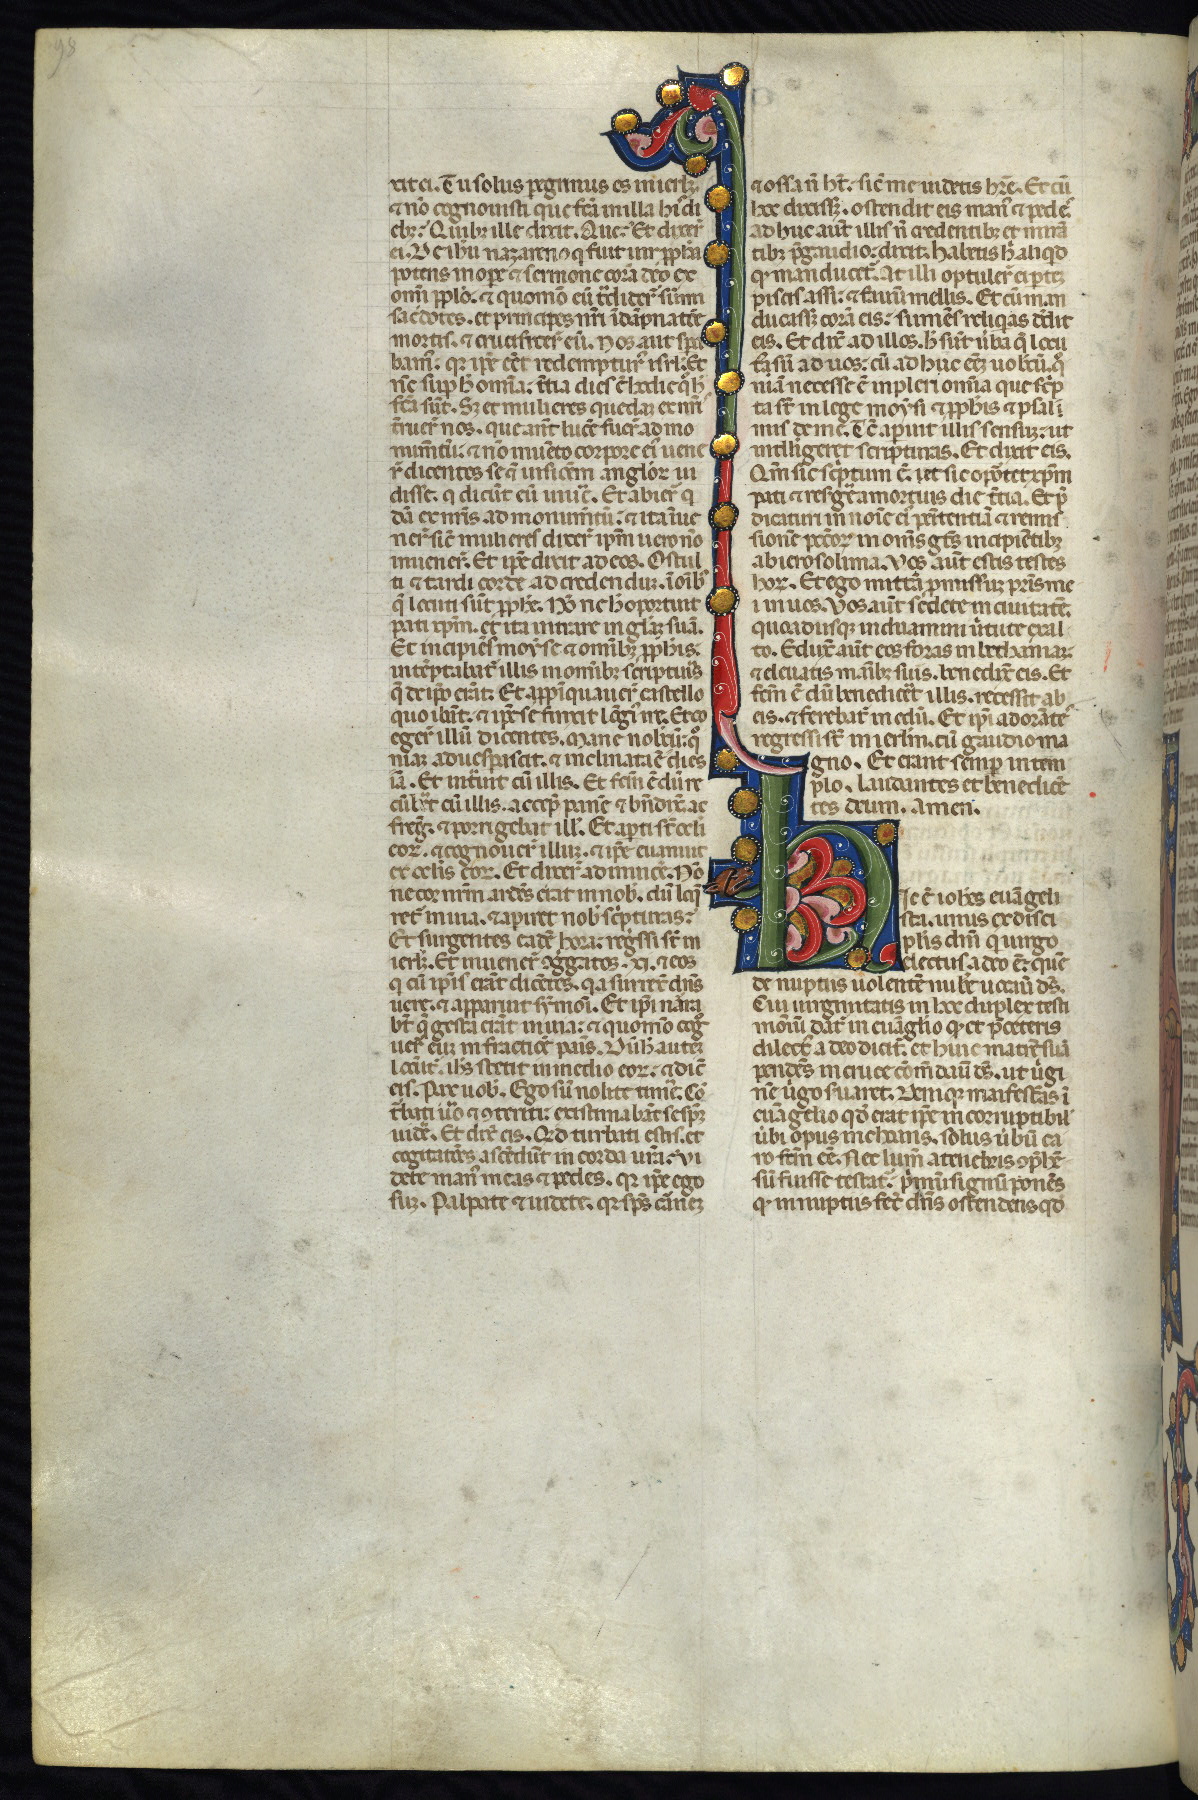 98
xit ei. Tu solus peginus es in ierl̅ꝫ.
⁊ nō cognouisti que fc̅a in illa hı̅s di
ebꝫ: Quibꝫ ille dixit. Que: Et dixer̅
ei. De ih̅u nazareno q̇ fuit uir ꝓph̅a
potens in oꝑe ⁊ sermone corā deo ex
om̅i pplo. ⁊ quom̅o eū t̅dider̅ sūmi
sac̅dotes. et principes nr̅i ı̅dāpnatōe̅
mortis. ⁊ crucifixer̅ eū. Nos aut̅ spa
bam̅. qꝛ ip̅e eēt redempturꝰ isr̅l. Et
nc̅ suꝑ h̅ om̅ia. t̅tia dies ē hodie q̇ h̅
fc̅a sūt. Sꝫ et mulieres quedaꝫ ex nr̅i
t̅ruer̅ nos. que an̅t lucē fuer̅ ad mo
num̅tū. ⁊ nō inuēto corpore eiꝰ uene
r̅ dicentes se ⁊ uisiōem anglor̅ ui
disse. q̇ dicūt eū uiue̅. Et abier̅ q̇
dā ex nr̅is ad monum̅tū: ⁊ ita īue
ner̅ sic̅ mulieres dixer̅ ip̅m uero nō
inuener̅. Et ip̅e dixit ad eos. O stul
ti ⁊ tardi corde ad credenduꝫ. ī oı̅bꝫ
q̅ locuti sūt ꝓph̅e. Nō ne h̅ oportuit
pati xp̅m. et ita intrare in gl̅aꝫ suā.
Et incipiēs moyse ⁊ om̅ibꝫ ꝓph̅is.
int̅ptabat̅ illis in om̅ibꝫ scripturis
q̅ de ip̅o erāt. Et appı̅quauer̅ castello
quo ibāt. ⁊ ip̅e se finxit lōgiꝰ ire. Et co
eger̅ illū dicentes. Mane nobc̅ū. qm̅
niaꝫ aduesꝑascit. ⁊ inclinata ē dies
iā. Et int̅uit cū illis. Et fc̅m ē dū re
cūb̅et cū illis. accep̅ panē ⁊ bn̅dix̅ ac
freḡ. ⁊ porrigebat ill̅. Et aꝑti st̅ oc̅li
eoꝛ. ⁊ cognouer̅ illuꝫ. ⁊ ip̅e euanuit
ex oc̅lis eoꝛ. Et dixer̅ ad inuicē. Nō
ne cor nr̅m ardēs erat in nob̅. dū loq̅
ret̅ in uia. ⁊ apiret nob̅ sc̅pturas:
Et surgentes eadē hora: reg̅ssi st̅ in
ierl̅ꝫ. Et inuener̅ ꝯg̅gatos. xi. ⁊ eos
q̇ cū ip̅is erāt dicētes. qꝛ surrex̅ dn̅s
uere. ⁊ apparuit symōi. Et ip̅i nara
bāt q̅ gesta erāt in uia: ⁊ quom̅o cog̅
uer̅ euꝫ in fractiōe̅ panis. Dū h̅ auteꝫ
locūt̅. ih̅s stetit in medio eoꝛ. ⁊ dic̅
eis. Pax uob̅. Ego sū nolite time̅. Cō
t̅bati u̅o ⁊ ꝯt̅riti: existimabāt se sp̅ꝫ
uide̅. Et dix̅ eis. Qd̅ turbati estis. et
cogitatōes ascēdūt in corda ur̅a: Vi
dete manꝰ meas ⁊ pedes. qꝛ ip̅e ego
suꝫ. Palpate ⁊ uidete. qꝛ sp̅s carneꝫ
⁊ ossa n̅ ht̅. sic̅ me uidetis hr̅e. Et cū
hec dixissꝫ. ostendit eis manꝰ ⁊ pede̅.
ad huc aut̅ illis n̅ credentibꝫ et mirā
tibꝫ p̅ gaudio: dixit. habetis h̅ aliqd̅
qd̅ manducet̅. At illi optuler̅ ei ꝑtez
piscis assi: ⁊ fauū mellis. Et cū man
ducassꝫ corā eis: sumēs reliqas dedit
eis. Et dix̅ ad illos. h̅ sūt u̅ba q̅ locu
tꝰ sū ad uos: cū ad huc eēꝫ uobc̅ū. qm̅
niā necesse ē inpleri om̅ia que sc̅p
ta st̅ in lege moysi ⁊ ꝓph̅is ⁊ psal
mis de me. Tc̅ aperuit illis sensuꝫ: ut
intelligeret scripturas. Et dixit eis.
Qm̅ sic sc̅ptum ē. ⁊ sic oportet xp̅m
pati ⁊ resg̅e a mortuis die t̅tia. Et p̅
dicaturi in noīe eiꝰ penitentiā ⁊ remis
sionē pecc̅oꝛ in om̅is g̅tes incipiētibꝫ
ab ierosolima. Vos aut̅ estis testes
hoꝛ. Et ego mittā promissuꝫ pr̅is me
i in uos. Vos aut̅ sedete in ciuitate.
quoadusqꝫ induamini u̅tute ex al
to. Eduxit aut̅ eos foras in bethaniaꝫ.
⁊ eleuatis manibꝫ suis. benedix̅ eis. Et
fc̅m ē dū benedicēt illis. recessit ab
eis. ⁊ ferebat̅ in celū. Et ip̅i adorātes
regressi st̅ in ierl̅m. cū gaudio ma
gno. Et erant semꝑ in tem
plo. laudantes et benedicē
tes deum. Amen.
Hic ē ioh̅es euāgeli
sta. unus ex disci
plis dn̅i q̇ uirgo
electus a deo ē: quē
de nuptiis uolentē nub̅e uocauit ds̅.
Cui uirginitatis in hoc duplex testi
moniū dat̅ in euāglio qd̅ et p̅ ceteris
dilectꝰ a deo dicit̅. et huic matrē suā
pendēs in cruce cōm̅dauit ds̅. ut u̅gi
nē u̅go s̅uaret. Deniqꝫ manifestās ī
euāgelio qd̅ erat ip̅e incorruptibil̅
u̅bi opus inchoans. solus u̅bū ca
ro fc̅m ēē. Nec lum̅ a tenebris ꝯph̅e
sū fuisse testat̅. p̅mū signū ponēs
qd̅ in nuptiis fec̅ dn̅s ostendens qd̅